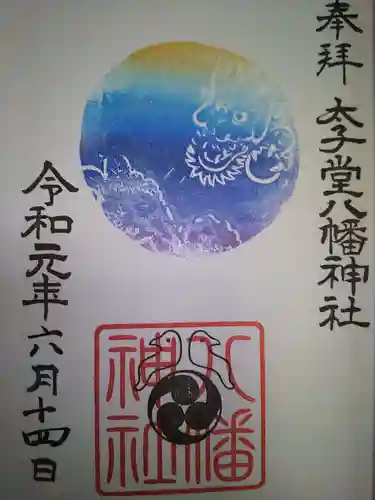 奉拝
太子堂八幡神社
八幡
神社
令和元年六月十四日